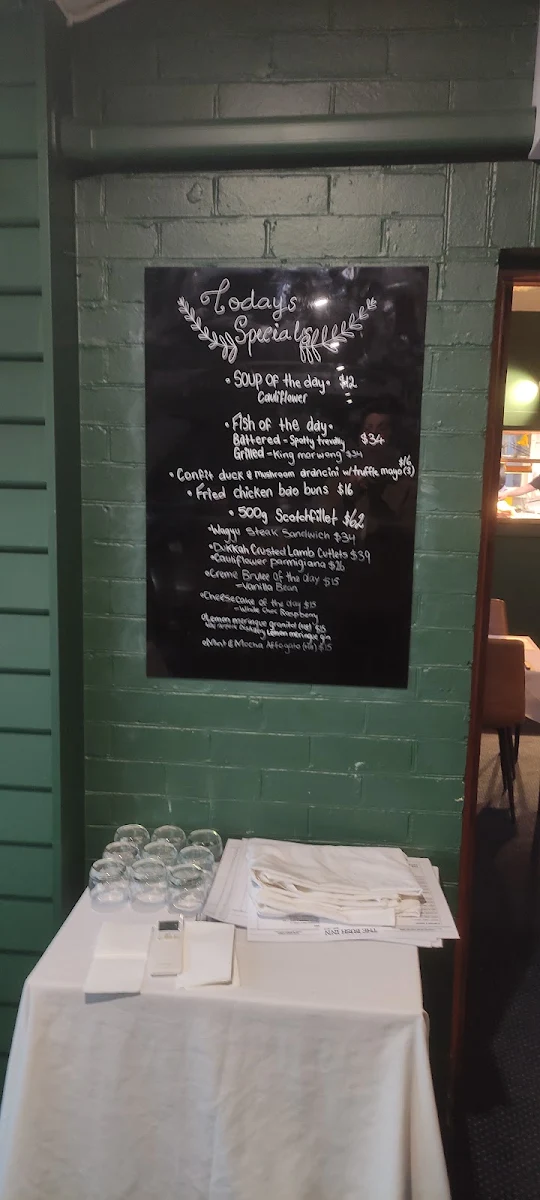 Todays
Specials
• SOUP OF the day • $12
Cauliflower
• Fish of the day •
Battered - Spotty trevally $34
Grilled - King morwong $34
• Confit duck & mushroom arancini w/truffle mayo (3) $16
• Fried chicken bao buns $16
• 500g Scotchfillet $62
• Wagyu Steak Sandwich $34
• Dukkah Crusted Lamb Cutlets $39
• Cauliflower parmigiana $26
• Creme Brulee of the day $15
- Vanilla Bean
• Cheesecake of the day $15
- White Choc Raspberry
• Lemon meringue granita $15
Lemon meringue gin
• Mint & Mocha Affogato $15
THE BUSH INN